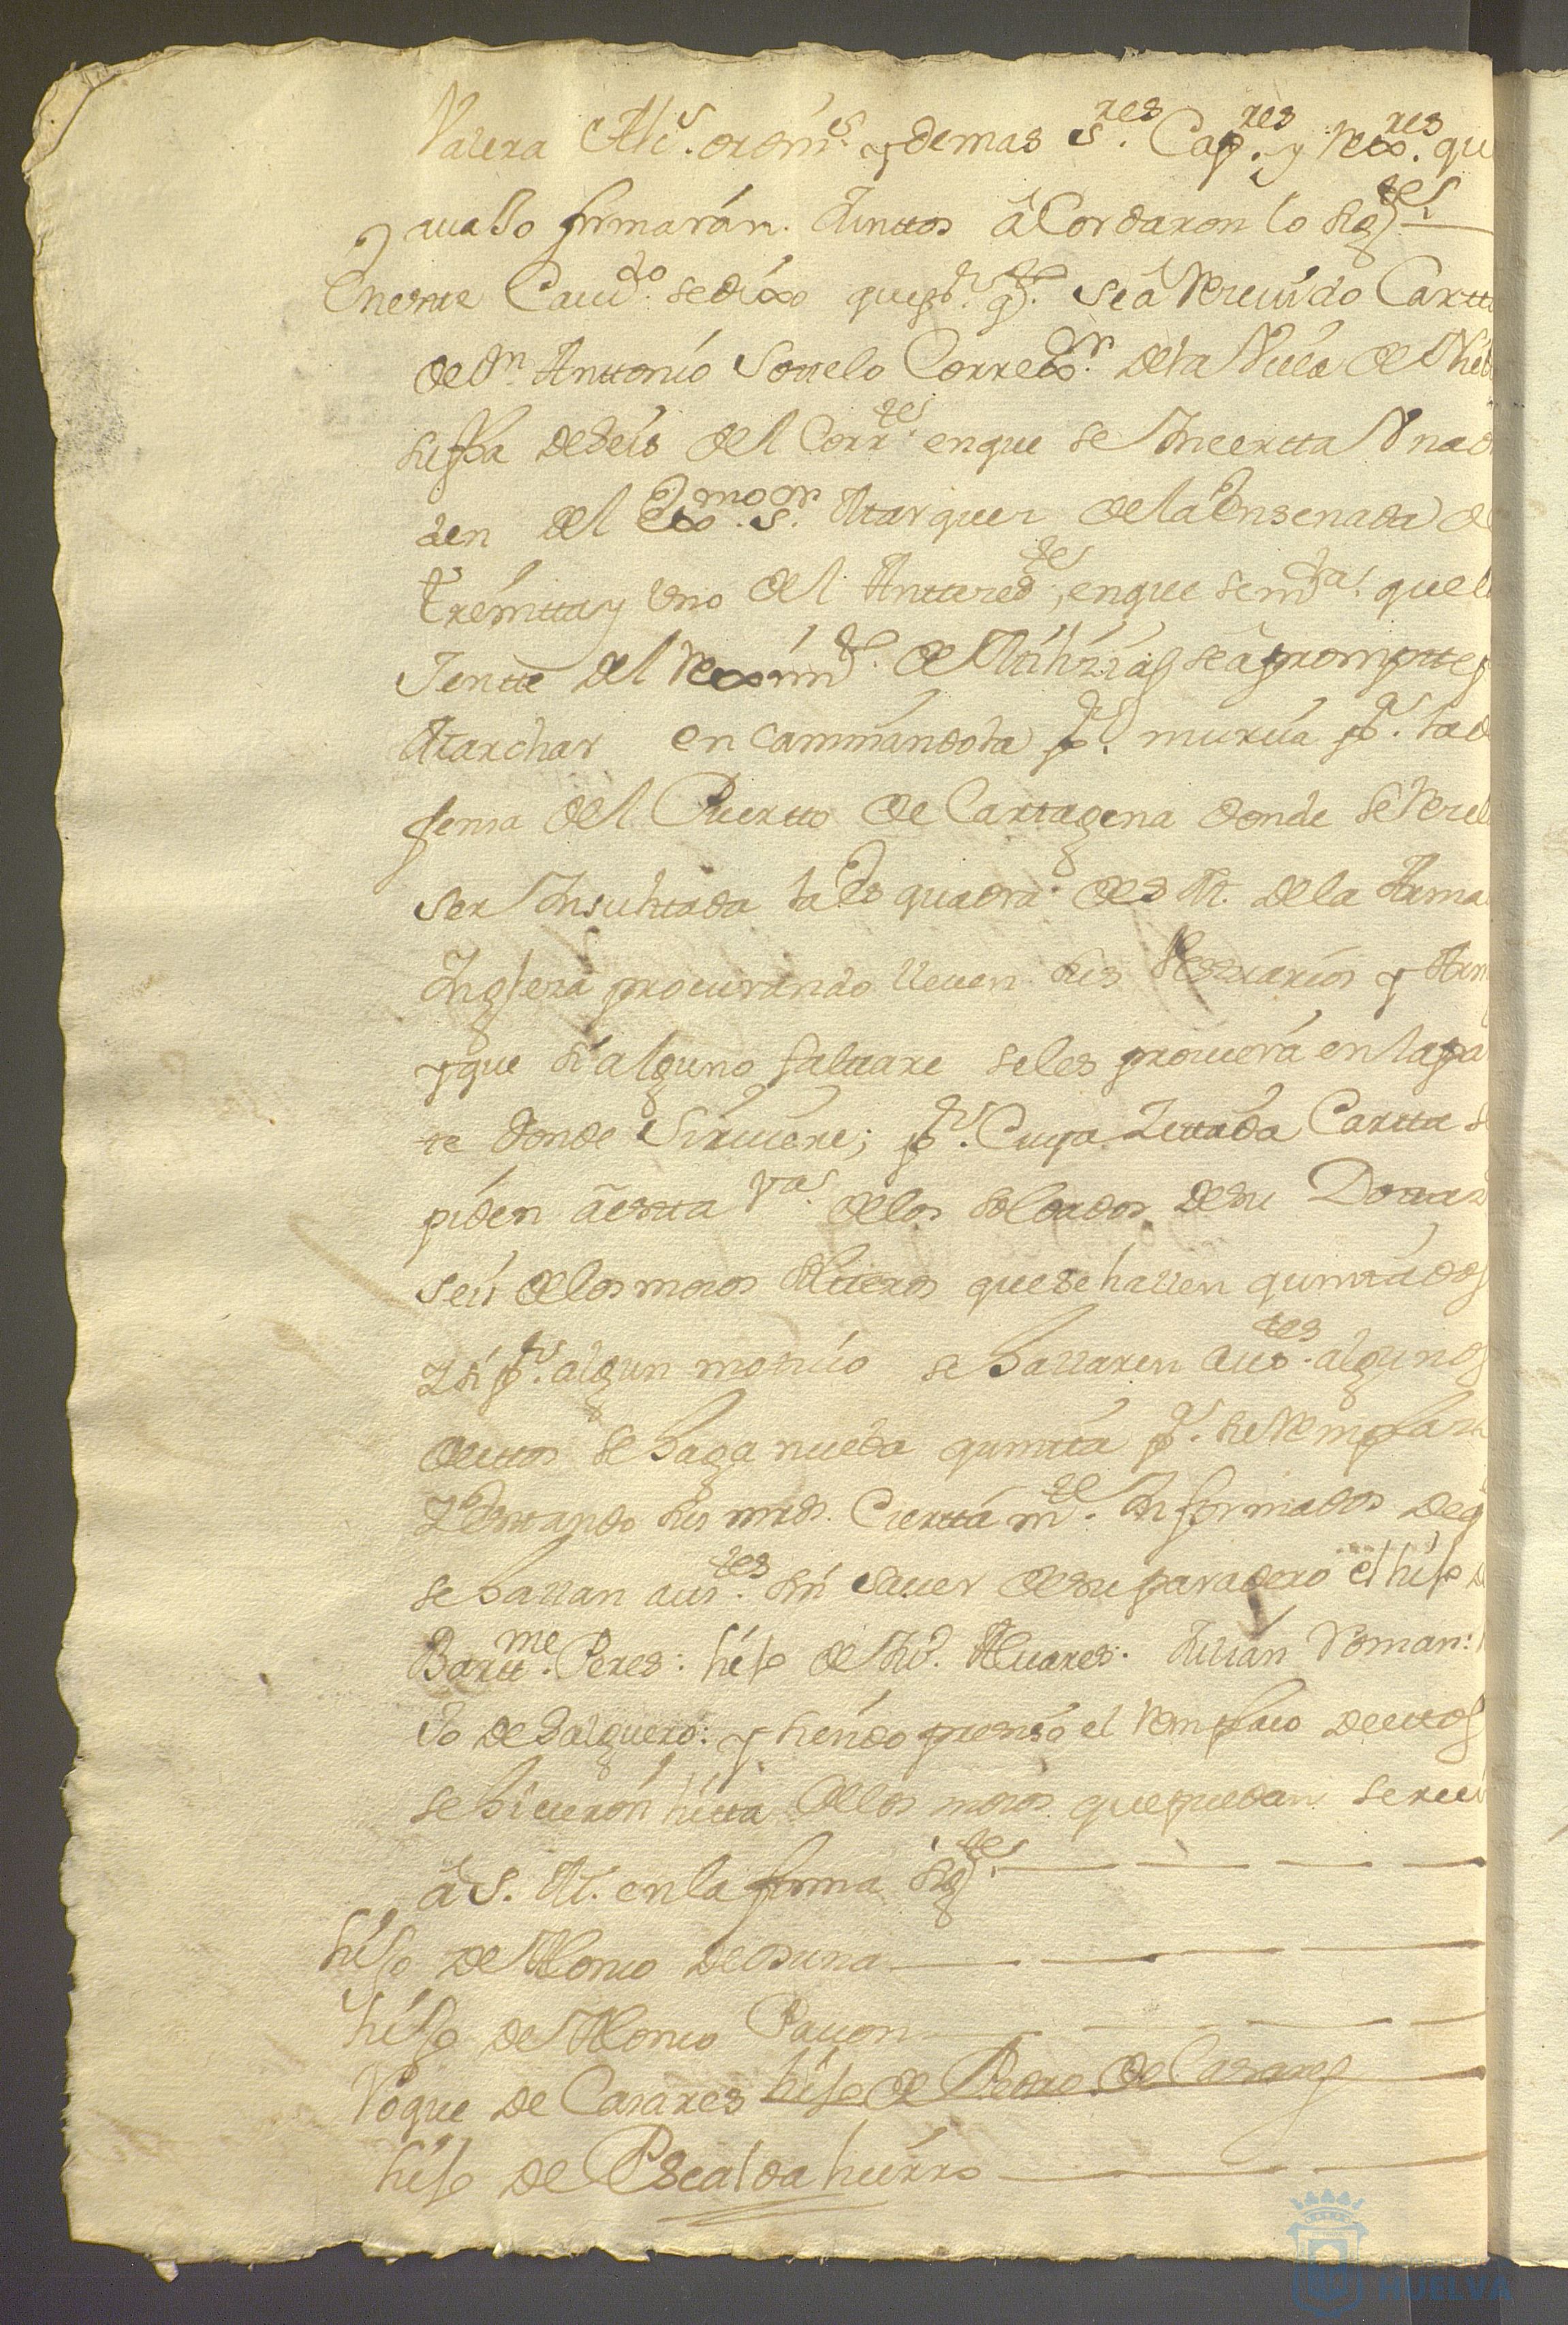 Valera Alc.s ordin.s y demas S.res Cap.res y Rex.res qu
avallo firmarán. Juntos â Cordaron lo Sig.te
Enestte Cavi.do sedixo quepr. q.te seâ Recivido Cartta
de Dn. Anttonio Sottelo Correx.or dela Villa de Nieb
su fha deseis del Corr.te enque se Incertta Vna or
den del Exmo. s.or Marques dela Ensenada de
treintta y Uno del Antteced.te, enque sem.da quela
Jentte del Reximi.to de Milizias seâprompte p
Marchar encaminandola p.r murcia p.a la de
fensa del Puertto de Cartagena donde se Recela
ser Insultada la Esquadra de S. M. de la Arma
Inglesa procurando lleven sus Vesttuarios y Arm
y que si alguno faltare seles proveerá en la par
te donde Sirviere; p.r Cuya Zittada Cartta se
piden âestta v.a los soldados desu Dottaz
seis delos mosos Soltteros que se hallen quinttados
Y si p.r algun mottivo se hallaren Aus.tes algunos
destos se haga nueba quintta p.a su Remplazo
Y Estando sus mrds. Ciertta m.te Informados deq
se hallan aus.tes sin saver desu paradero el hijo de
Bartt.me Peres: hijo de Ju.o Alvares. Julián Roman:
jo de Salguero: y siendo presiso el Remplaso deestos
se hicieron lista delos mosos que puedan servir
â S. M. en la forma Sig.te
hijo de Alonso de Osuna
hijo de Alonso Pavon
Roque de Casares hijo de Pedro de Casares
hijo de Escaldahierro
HUELVA